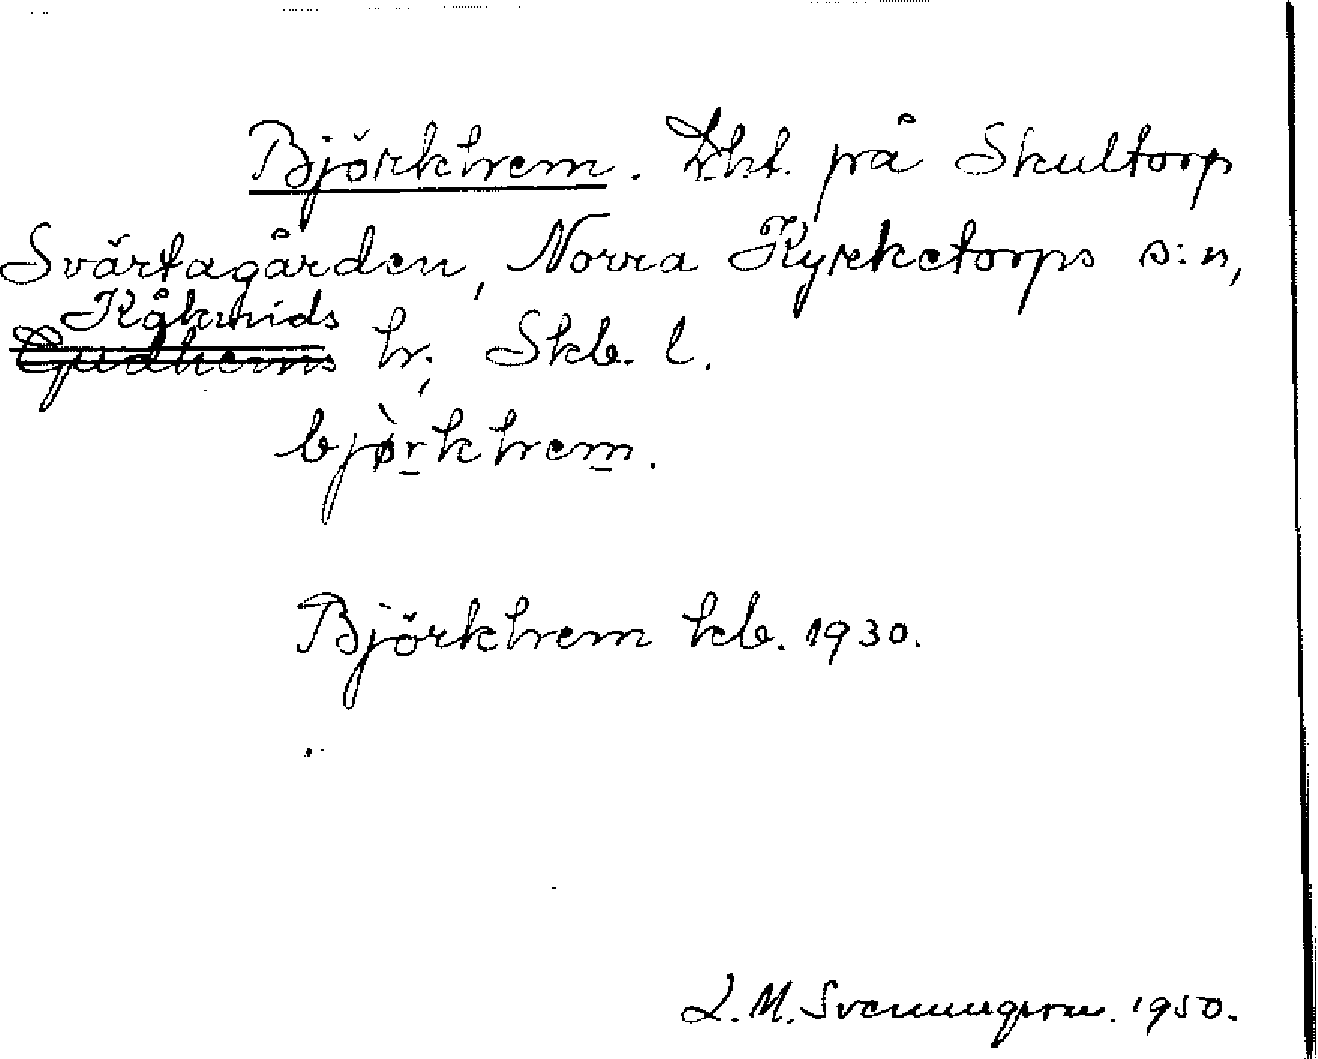 Björkhem. Lht. på Skultorp
Svärtagården, Norra Kyrketorps s:n,
Kåkinds
Gudhems hr, Skb. l.
bjò̈rkhem.
Björkhem kb. 1930.
L.M. Svenungsson. 1950.